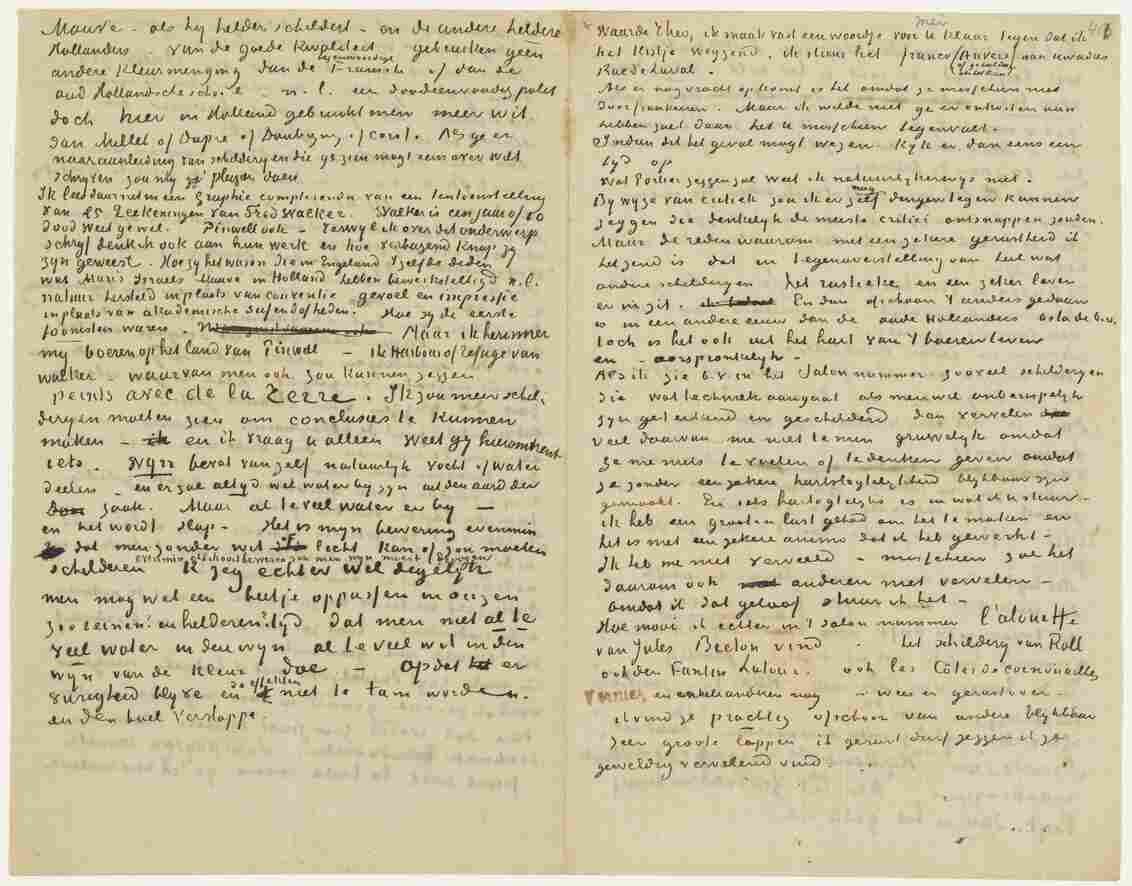 Mauve – als hij helder schildert – en de andere heldere
Hollanders – van de goede kwaliteit gebruiken géén
andere kleurmenging dan de tegenwoordige Fransche of dan de
oud Hollandsche school – n.l. een doodeenvoudig palet
doch hier in Holland gebruikt men meer wit
dan Millet of Dupré of Daubigny of Corot. Als ge er
naar aanleiding van schilderijen die ge zien mogt eens over wilt
schrijven zou mij zij plezier doen.
Ik lees daar net in een Graphic complementn van een tentoonstelling
van 25 Teekeningen van Fred Walker. Walker is een jaar of 10
dood weet ge wel. Pinwell ook – terwijl ik over dit onderwerp
schrijf denk ik ook aan hun werk en hoe verbazend knap zij
zijn geweest. Hoe zij het waren die in Engeland 't zelfde deden
wat Maris Israels Mauve in Holland hebben bewerkstelligd n.l.
natuur hersteld in plaats van conventie gevoel en impressie
in plaats van akademische dufendofheden. Hoe zij de eerste
toonisten waren. Maar ik herinner
mij boeren op het land van Pinwell – ik Harbour of refuge van
Walker – waarvan men ook zou kunnen zeggen
peints avec de la terre. Ik zou meer schil-
derijen moeten zien om conclusies te kunnen
maken – en ik vraag u alleen weet gij hieromtrent
iets. Wijn bevat van zelf natuurlijk vocht of water
deelen – en er zal altijd wel water bij zijn uit den aard der
zaak. Maar al te veel water er bij –
en het wordt slap – Het is mijn bewering evenmin
dat men zonder wit licht kan of zou moeten
evenmin als ik zou beweren zou men wijn moest drogen
schilderen Ik zeg echter wel degelijk
men mag wel een beetje oppassen in onzen
zoo reinen en helderen tijd dat men niet al te
veel water in den wijn al te veel wit in den
wijn van de kleur doe – opdat er
vurigheid blijve en de effekten niet te tam worden.
en den boel verslappe.
Waarde Theo, ik maak vast een woordje voor u klaar tegen dat ik
het kistje wegzend. ik stuur het franco (Anvers) aan uw adres
Rue de Laval.
Als er nog vracht op komt is het omdat ze misschien niet
doorfrankeren. Maar ik wilde niet ge er onkosten aan
hebben zoudt daar het u misschien tegenvalt.
Indien dit het geval mogt wezen. Kijk er dan eens een
tijd op
Wat Portier zeggen zal weet ik natuurlijkerwijs niet.
Bij wijze van critiek zou ik er zelf nog dingen tegen kunnen
zeggen die denkelijk de meeste critici ontsnappen zouden.
Maar de reden waarom met een zekere gerustheid ik
het zend is dat in tegenoverstelling van heel wat
andere schilderijen het rustieke en een zeker leven
er in zit. En dan ofschoon 't anders gedaan
is in een andere eeuw dan de oude Hollanders Ostade b.v.
toch is het ook uit het hart van 't boerenleven
en – oorspronkelijk –
Als ik zie b.v. in het Salonnummer zooveel schilderijen
die wat techniek aangaat als men wil onberispelijk
zijn geteekend en geschilderd dan vervelen
veel daarvan me niettemin gruwelijk omdat
ze me niets te voelen of te denken geven omdat
ze zonder een zekere hartstogtelijkheid blijkbaar zijn
gemaakt. En iets hartogtelijks is in wat ik u stuur –
ik heb een grooten lust gehad om het te maken en
het is met een zekere animo dat ik heb gewerkt –
Ik heb me niet verveeld – misschien zal het
daarom ook anderen niet vervelen –
omdat ik dat geloof stuur ik het –
Hoe mooi ik echter in 't salonnummer l'alouette
van Jules Breton vind – het schilderij van Roll
ook den Fantin Latour. ook les Côtes de Cornouailles
Vernier en enkele andren nog – wees er gerust over –
ik vind ze prachtig ofschoon van andere blijkbaar
zeer groote lappen ik gerust durf zeggen ik ze
geweldig vervelend vind.